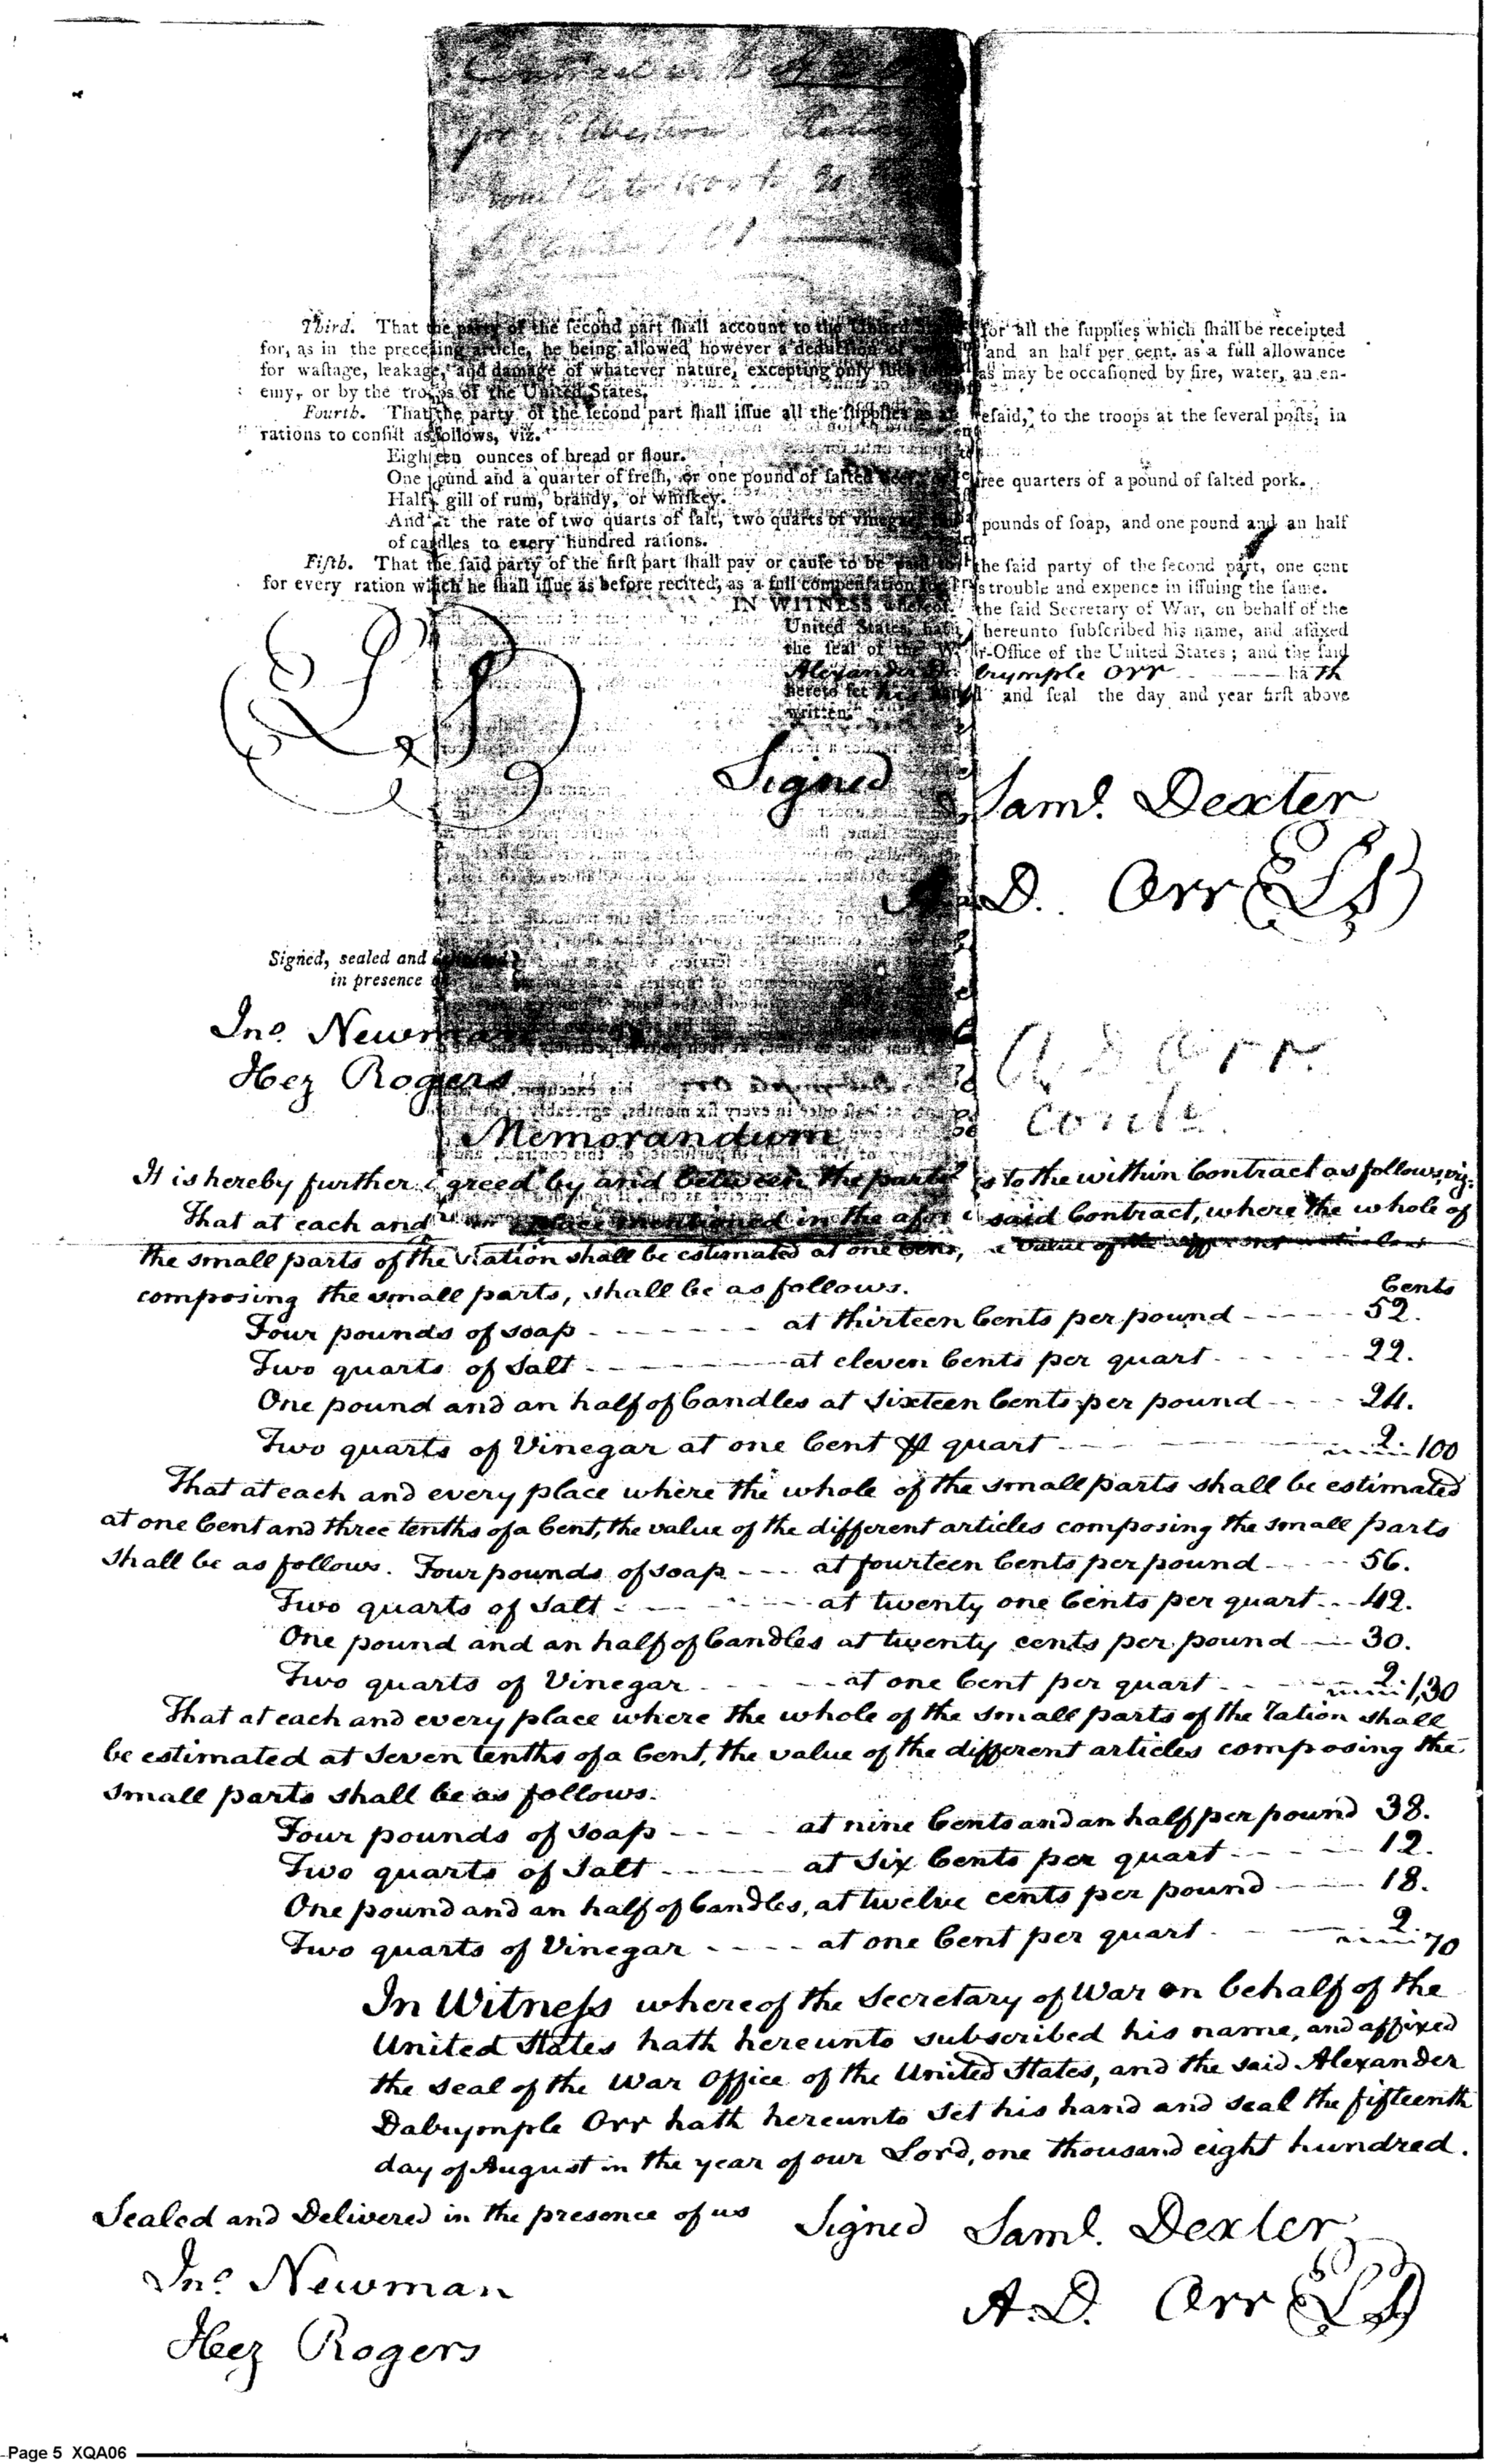 Contract with A D Orr
for ye Western
from 1 Octo 1800 to 30
September 1801
Third. That the party of the ſecond part ſhall account to the United States for all the ſupplies which ſhall be receipted
for, as in the preceding article, he being allowed however a deduction of and an half per cent. as a full allowance
for waſtage, leakage, and damage of whatever nature, excepting only ſuch as may be occaſioned by fire, water, an en-
emy, or by the troops of the United States.
Fourth. That the party of the ſecond part ſhall iſſue all the ſupplies as aforeſaid, to the troops at the ſeveral poſts, in
rations to conſiſt as follows, viz.
Eighteen ounces of bread or flour.
One pound and a quarter of freſh, or one pound of ſalted beef, or three quarters of a pound of ſalted pork.
Half gill of rum, brandy, or whiſkey.
And at the rate of two quarts of ſalt, two quarts of vinegar, pounds of ſoap, and one pound and an half
of candles to every hundred rations.
Fifth. That the ſaid party of the firſt part ſhall pay or cauſe to be paid to the ſaid party of the ſecond part, one cent
for every ration which he ſhall iſſue as before recited, as a full compenſation for his trouble and expence in iſſuing the ſame.
IN WITNESS whereof, the ſaid Secretary of War, on behalf of the
United States, hath hereunto ſubſcribed his name, and affixed
the ſeal of the War-Office of the United States; and the ſaid
Alexander Dalrymple Orr hath
hereto ſet his hand and ſeal the day and year firſt above
written.
LS
Signed Saml. Dexter
A. D. Orr LS
Signed, sealed and delivered
in presence of
Jno. Newman
Hez Rogers
A D Orr
Contr.
Memorandum
It is hereby further agreed by and between the parties to the within Contract as follows, viz.
That at each and every place mentioned in the aforesaid Contract, where the whole of
the small parts of the ration shall be estimated at one Cent, the value of the different articles
composing the small parts, shall be as follows. Cents
Four pounds of soap - - - - - at thirteen Cents per pound - - - - 52.
Two quarts of Salt - - - - - at eleven Cents per quart - - - - 22.
One pound and an half of Candles at Sixteen Cents per pound - - - 24.
Two quarts of Vinegar at one Cent ⅌ quart - - - - 2. 100
That at each and every place where the whole of the small parts shall be estimated
at one Cent and three tenths of a Cent, the value of the different articles composing the small parts
shall be as follows. Four pounds of soap - - - at fourteen Cents per pound - - - - 56.
Two quarts of Salt - - - - at twenty one Cents per quart - - 42.
One pound and an half of Candles at twenty cents per pound - - - 30.
Two quarts of Vinegar - - - - at one Cent per quart - - - 2. 1,30
That at each and every place where the whole of the small parts of the ration shall
be estimated at Seven tenths of a Cent, the value of the different articles composing the
small parts shall be as follows.
Four pounds of soap - - - - at nine Cents and an half per pound 38.
Two quarts of Salt - - - - at Six Cents per quart - - - - 12.
One pound and an half of Candles, at twelve cents per pound - - - 18.
Two quarts of Vinegar - - - - at one Cent per quart - - - 2. 70
In Witneſs whereof the Secretary of War on behalf of the
United States hath hereunto subscribed his name, and affixed
the seal of the War Office of the United States, and the said Alexander
Dalrymple Orr hath hereunto set his hand and seal the fifteenth
day of August in the year of our Lord, one thousand eight hundred.
Sealed and Delivered in the presence of us Signed Saml. Dexter
Jno. Newman A. D. Orr LS
Hez Rogers
Page 5 XQA06